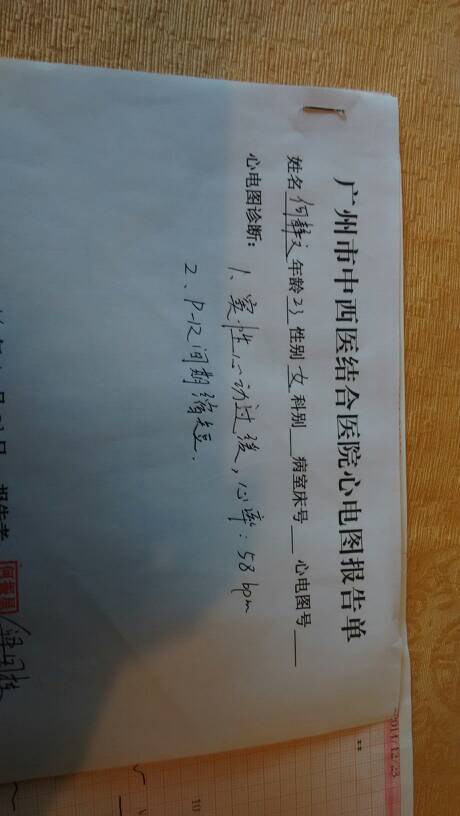 广州市中西医结合医院心电图报告单
姓名 何静文 年龄 23 性别 女 科别 病室床号 心电图号
心电图诊断：
1、窦性心动过缓，心率：58bpm
2、P-R间期缩短.
报告者
2014/12/23
10